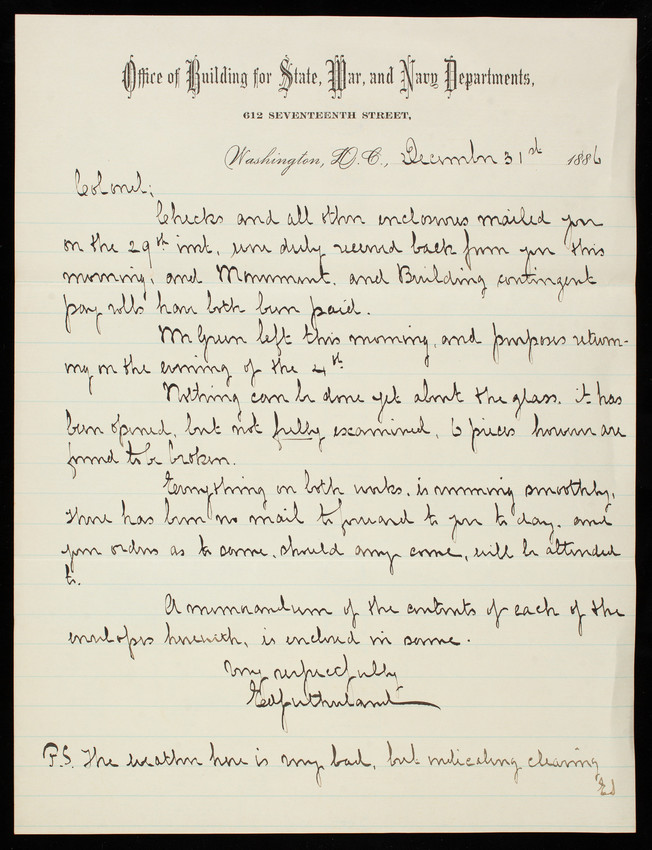 Office of Building for State, War, and Navy Departments,
612 SEVENTEENTH STREET,
Washington, D.C., December 31st 1886
Colonel;
Checks and all other enclosures mailed you
on the 29th inst, were duly received back from you this
morning; and Monument, and Building contingent
pay rolls have both been paid.
Mr Green left this morning, and purposes return-
ing on the evening of the 4th
Nothing can be done yet about the glass. it has
been opened, but not fully examined, 6 pieces however are
found to be broken.
Everything on both works, is running smoothly,
there has been no mail to forward to you to day, and
your orders as to same, should any come, will be attended
to.
A memorandum of the contents of each of the
envelopes herewith, is enclosed in same.
Very respectfully
Ed Sutherland
P.S. The weather here is very bad, but indicating clearing
Ed